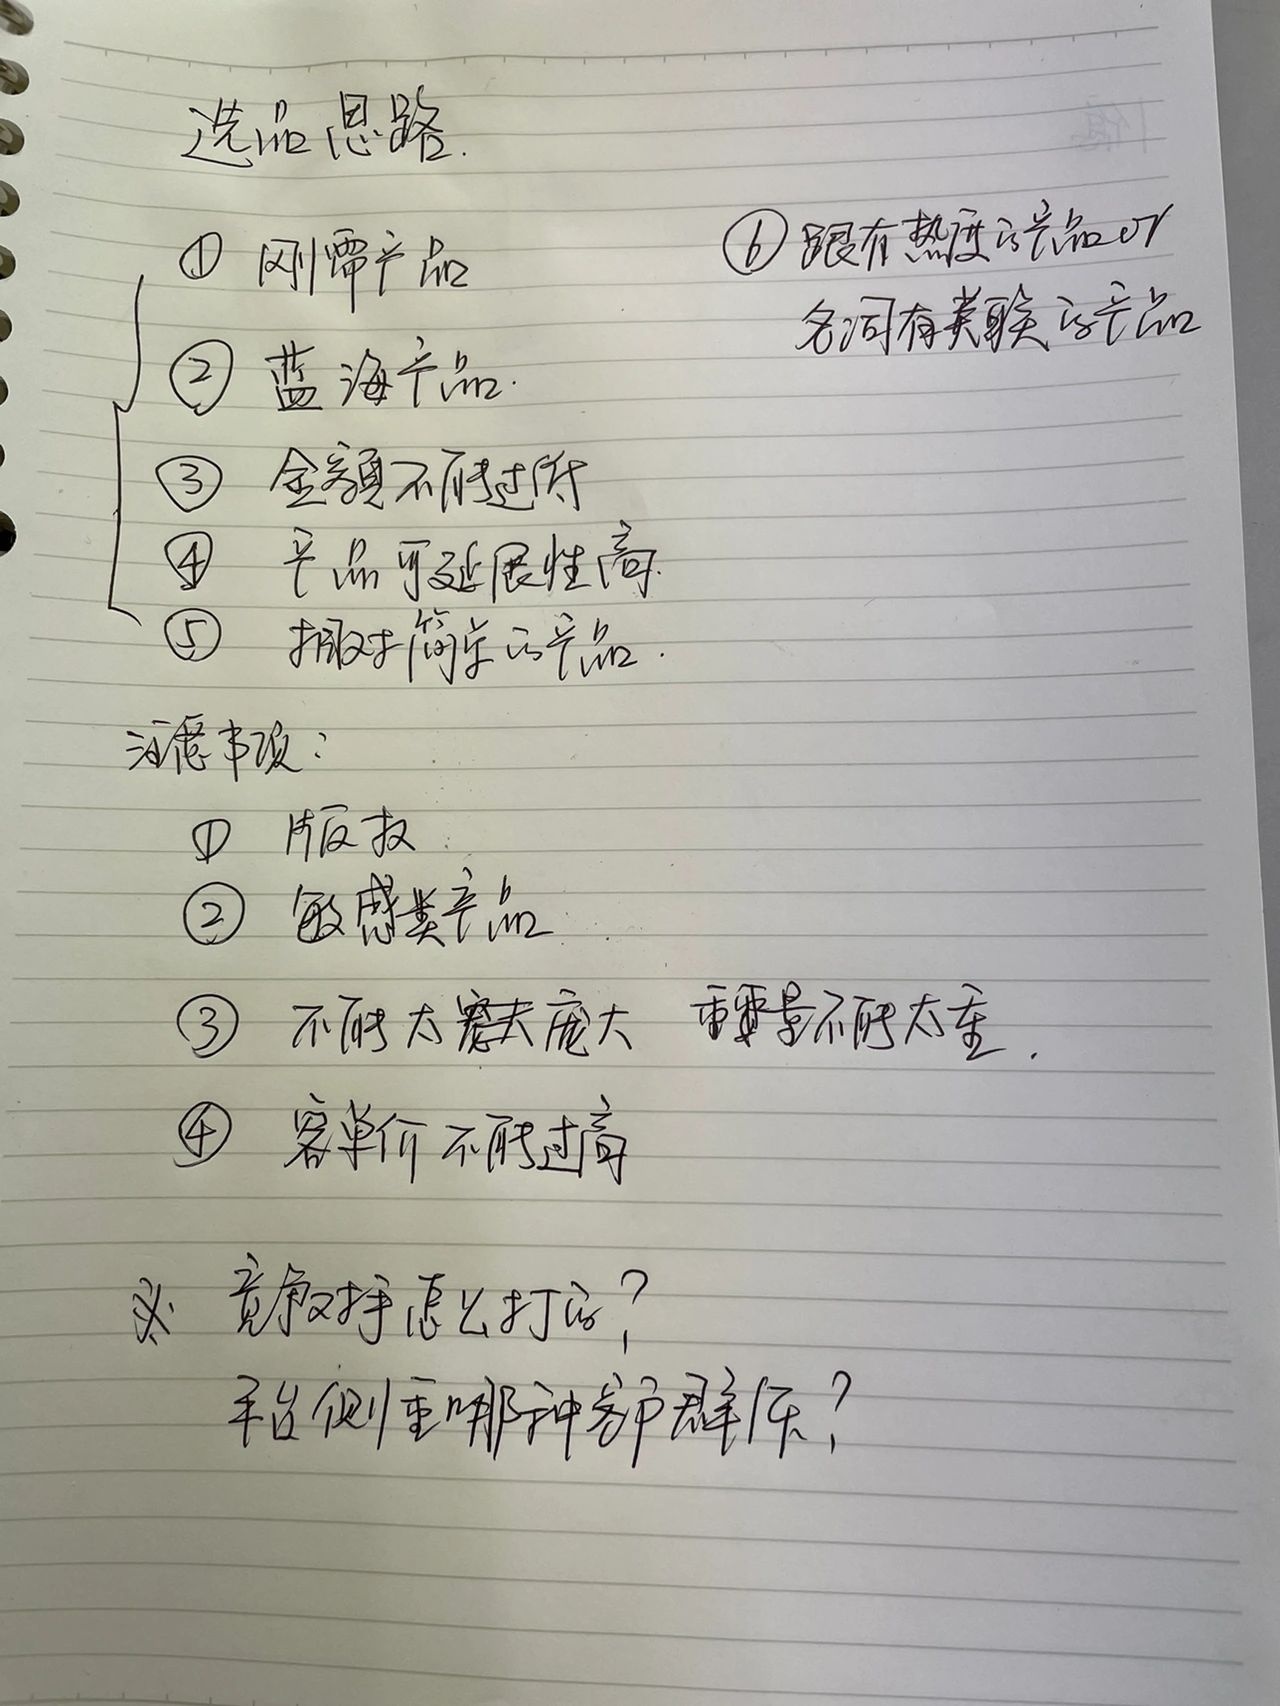 选品思路.
① 刚需产品
② 蓝海产品.
③ 金额不能过低
④ 产品可延展性高.
⑤ 操作简单的产品.
⑥ 跟有热度的产品or
名词有关联的产品
注意事项:
① 版权
② 敏感类产品
③ 不能太 庞大 重量不能太重.
④ 客单价不能过高
※ 竞争对手怎么打的?
平台侧重哪种客户群体?